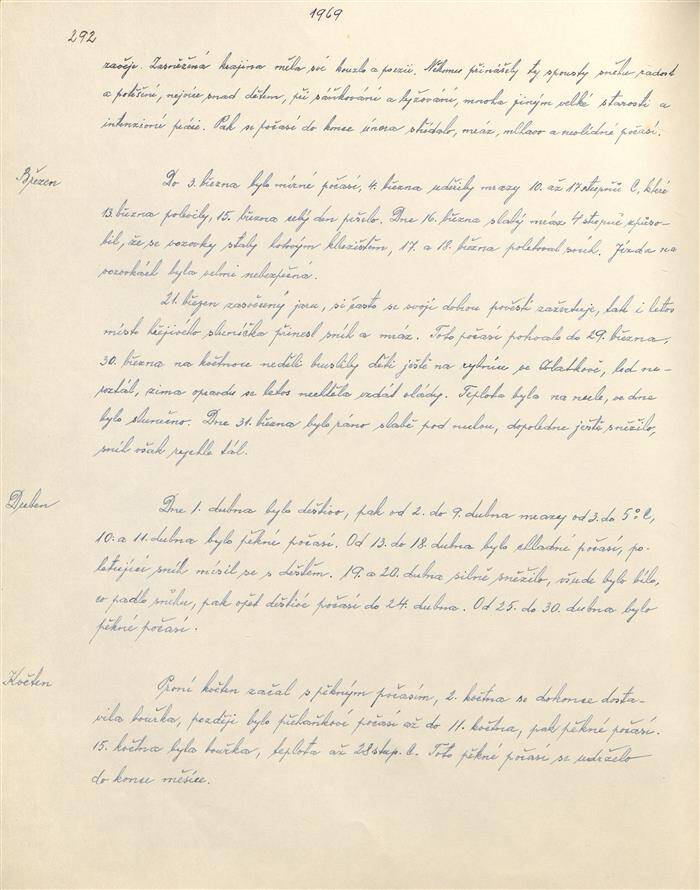 1969
292
závěje. Zasněžená krajina měla své kouzlo a poezii. Někomu přinášely ty spousty sněhu radost
a potěšení, nejvíce snad dětem, při sáňkování a lyžování, mnoha jiným velké starosti a
intenzivní práci. Pak se počasí do konce února střídalo, mráz, mlhavo a nevlídné počasí.
Březen
Do 3. března bylo mírné počasí, 4. března udeřily mrazy 10. až 17 stupňů C, které
13. března polevily, 15. března celý den pršelo. Dne 16. března slabý mráz 4 stupně způso-
bil, že se vozovky staly totrým kluzištěm, 17. a 18. března poletoval sníh. Jízda na
vozovkách byla velmi nebezpečná.
21. březen zasvěcený jaru, si často se svojí dobrou pověstí zažertuje, tak i letos
místo hřejivého sluníčka přinesl sníh a mráz. Toto počasí potrvalo do 29. března,
30. března na květnou neděli bruslily děti ještě na rybníce ve Blatkově, led ne-
roztál, zima opravdu se letos nechtěla vzdát vlády. Teplota byla na nule, ve dne
bylo slunečno. Dne 31. března bylo ráno slabě pod nulou, dopoledne ještě sněžilo,
sníh však rychle tál.
Duben
Dne 1. dubna bylo deštivo, pak od 2. do 9. dubna mrazy od 3. do 5° C,
10. a 11. dubna bylo pěkné počasí. Od 13. do 18 dubna bylo chladné počasí, po-
letující sníh mísil se s deštěm. 19. a 20. dubna silně sněžilo, všude bylo bílo,
co padlo sněhu, pak opět deštivé počasí do 24. dubna. Od 25. do 30. dubna bylo
pěkné počasí.
Květen
První květen začal s pěkným počasím, 2. května se dokonce dosta-
vila bouřka, později bylo přeháňkové počasí až do 11. května, pak pěkné počasí.
15. května byla bouřka, teplota až 28 stup. C. Toto pěkné počasí se udrželo
do konce měsíce.